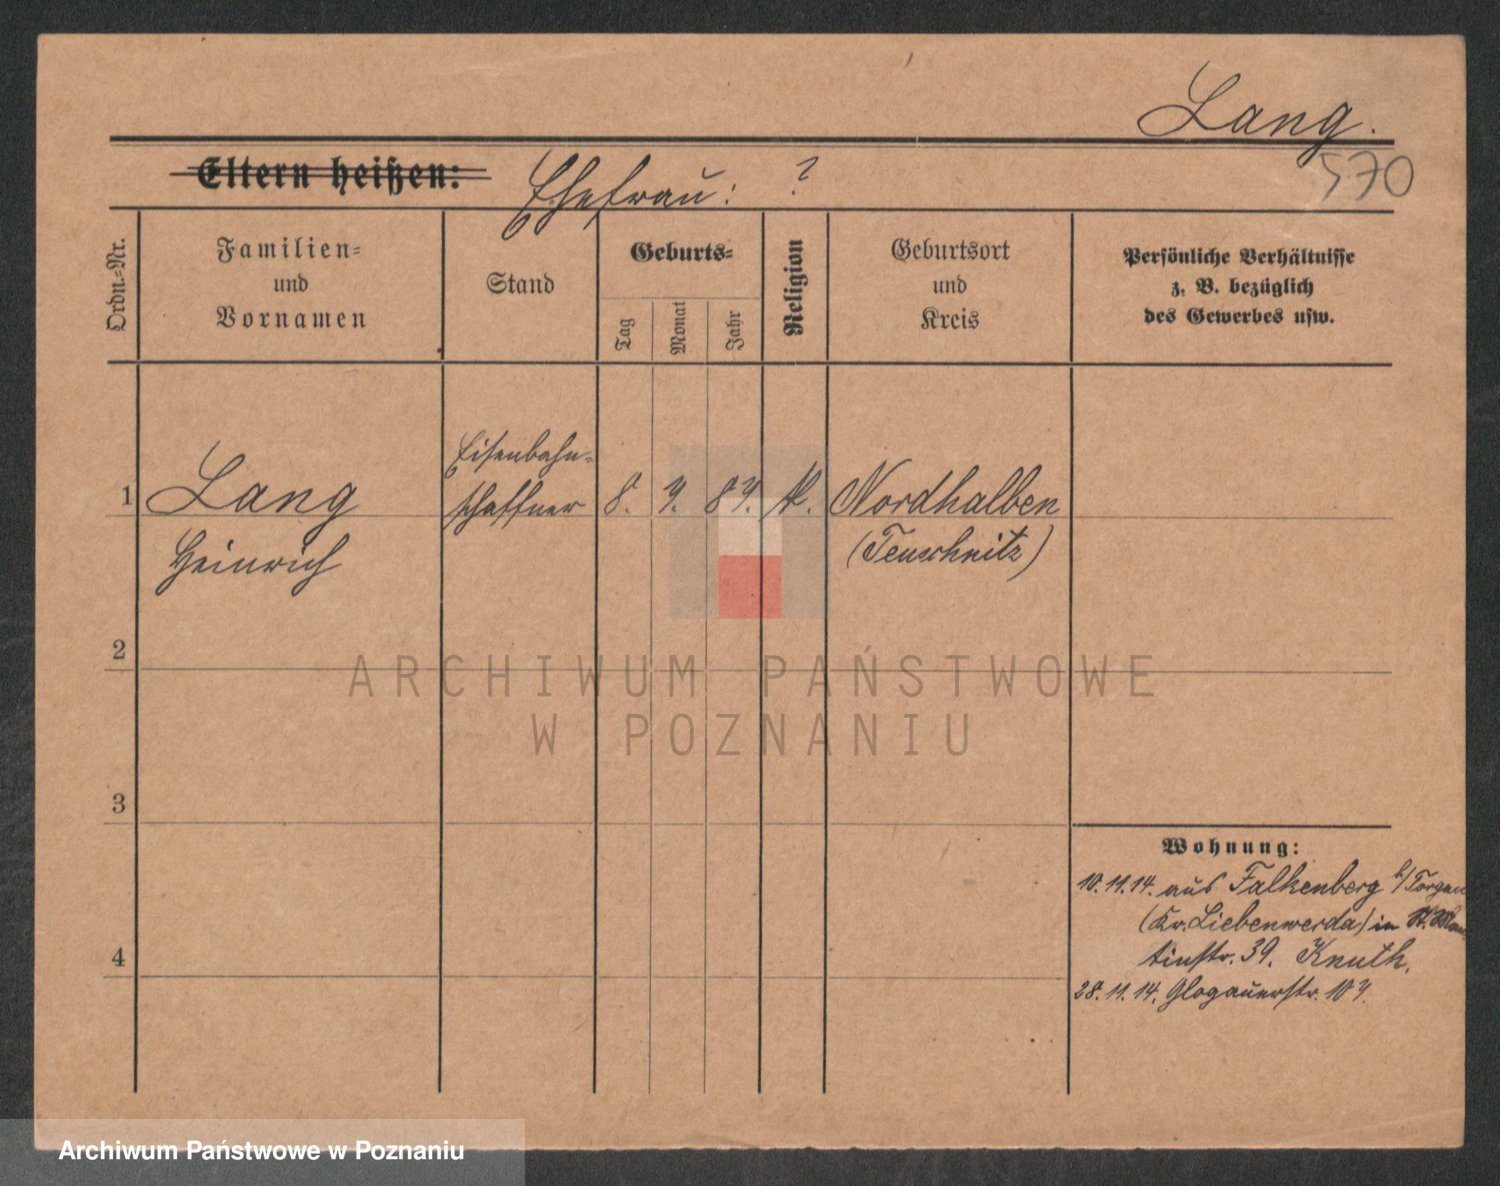 Lang.
570
Eltern heißen: Ehefrau: ?
Ordn.-Nr.
Familien-
und
Vornamen
Stand
Geburts-
Tag
Monat
Jahr
Religion
Geburtsort
und
Kreis
Persönliche Verhältnisse
z. B. bezüglich
des Gewerbes usw.
Eisenbahn-
1 Lang schaffner 8. 7. 87. k. Nordhalben
Heinrich (Teuschnitz)
2
3
4
ARCHIWUM PAŃSTWOWE
W POZNANIU
Wohnung:
10.11.14. aus Falkenberg b/Torgau
(Kr. Liebenwerda) in St. Mar-
tinstr. 39. Knuth.
28.11.14. Glogauerstr. 107.
Archiwum Państwowe w Poznaniu